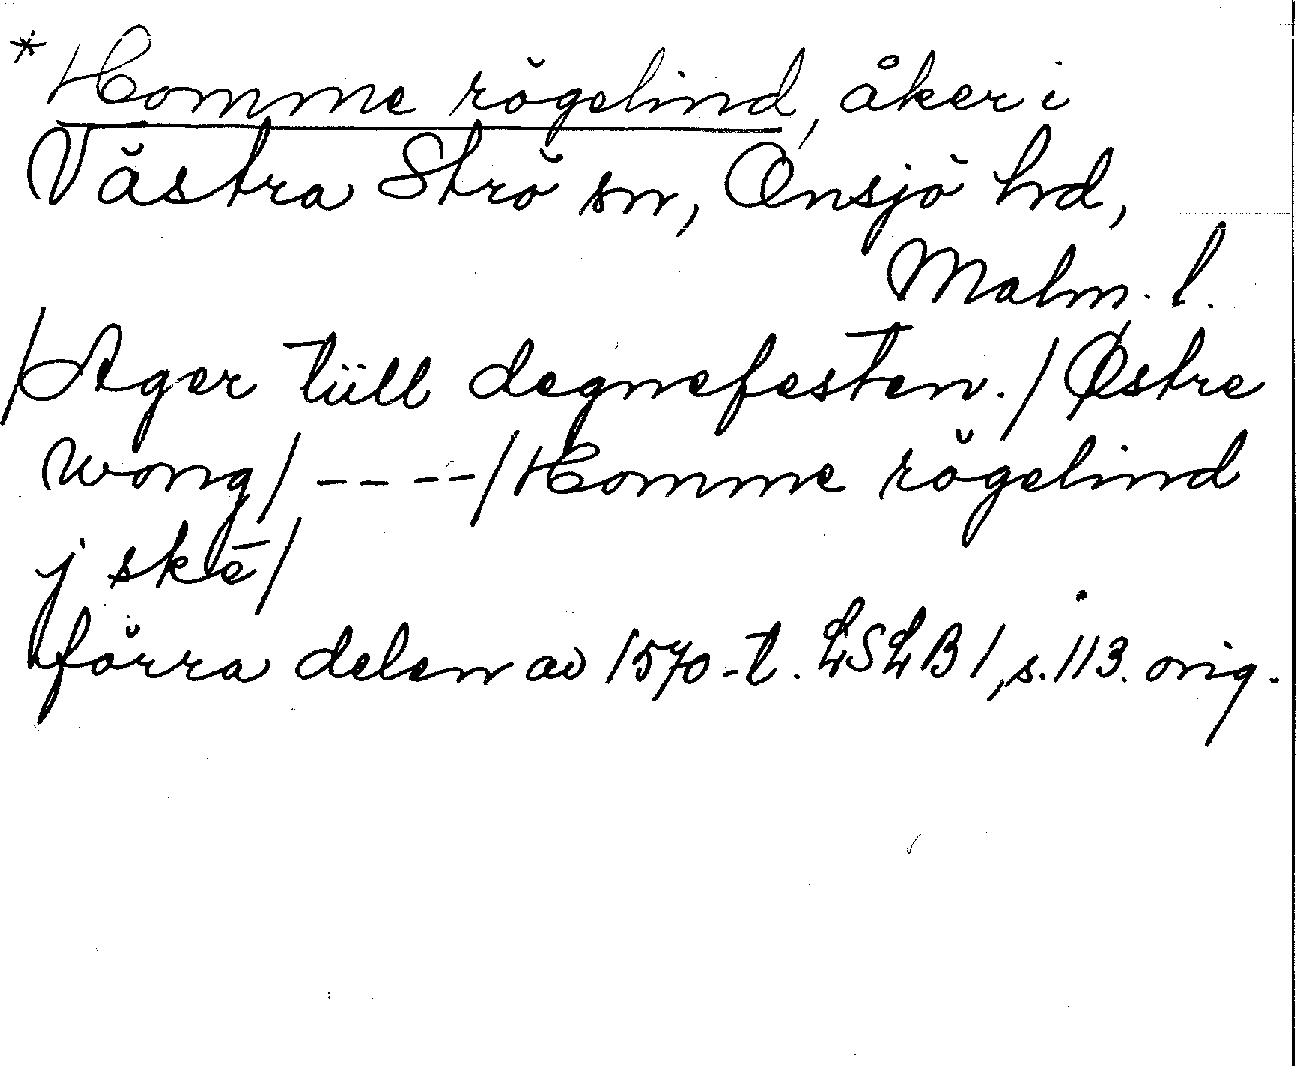 * Homme rögelind, åker i
Västra Strö sn, Onsjö hd,
Malm. l.
/Ager tüll degnefesten./Østre
wong/ -- -- /Homme rögelind
j skē/
förra delen av 1570-t. LSLB1, s. 113. orig.